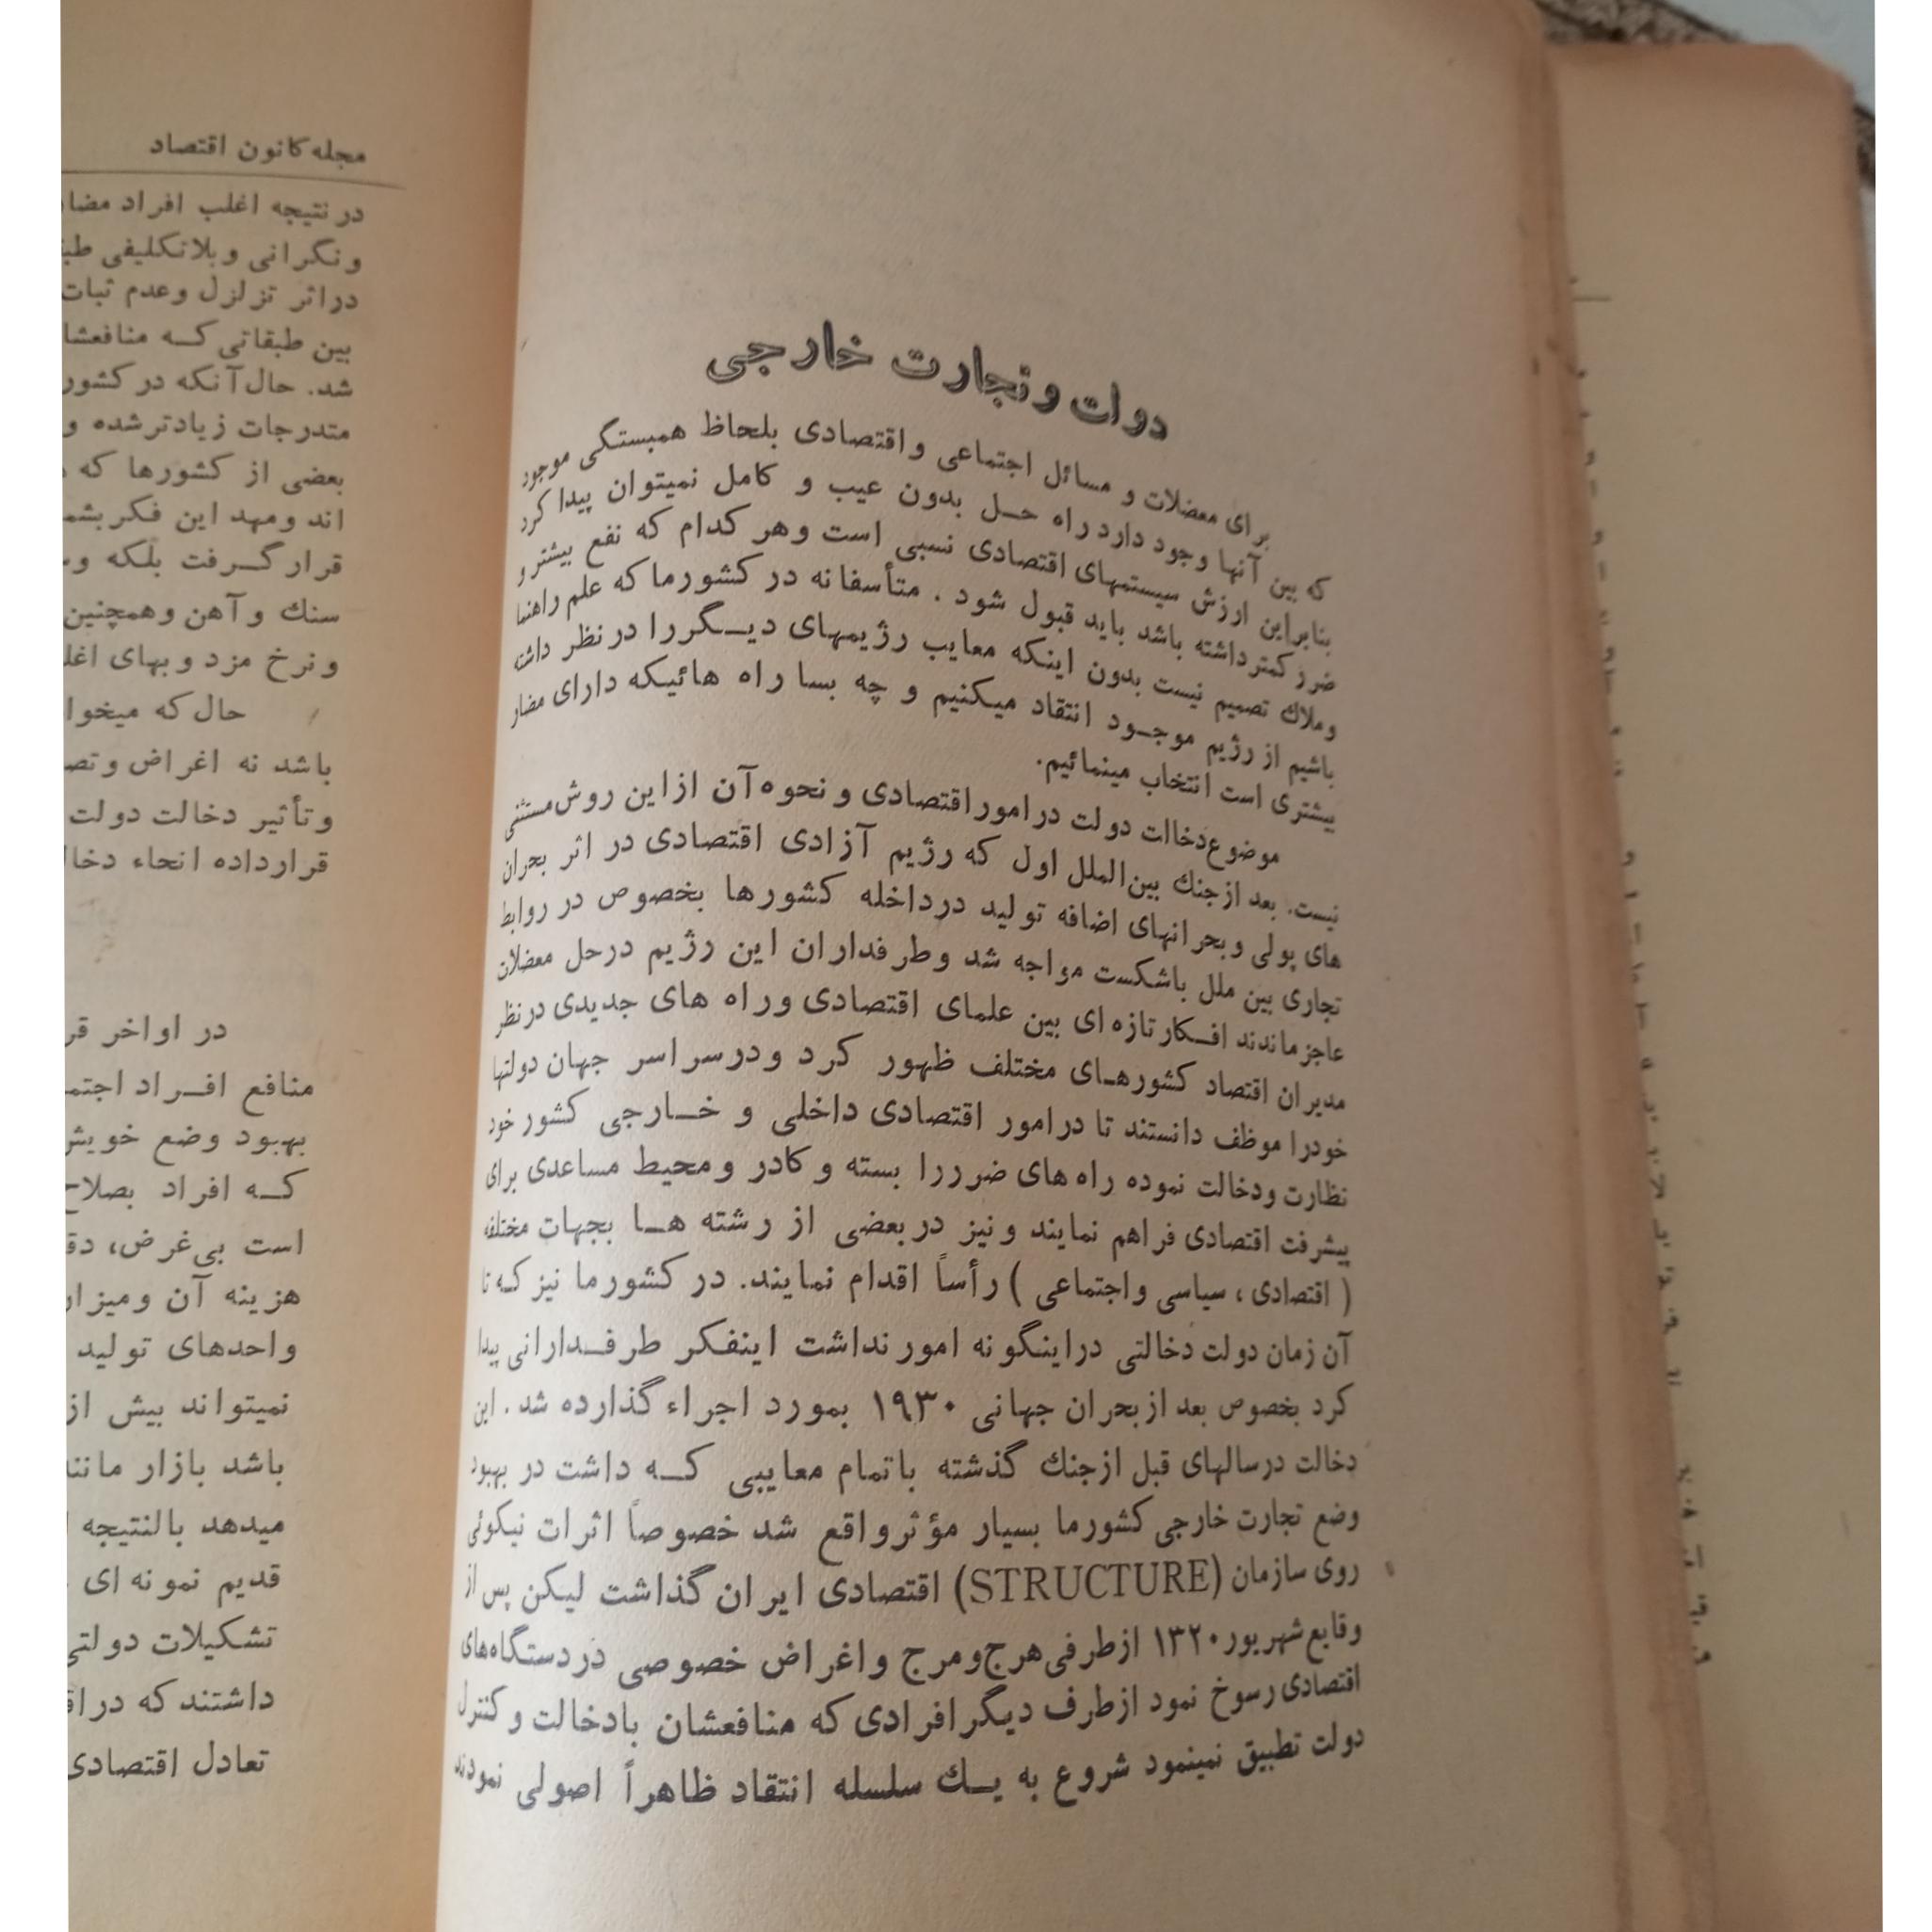 دولت و تجارت خارجی
برای معضلات و مسائل اجتماعی و اقتصادی بلحاظ همبستگی موجود
که بین آنها وجود دارد راه حل بدون عیب و کامل نمیتوان پیدا کرد
بنابراین ارزش سیستمهای اقتصادی نسبی است وهر کدام که نفع بیشتر و
ضرر کمتر داشته باشد باید قبول شود . متأسفانه در کشور ما که علم راهنما
و ملاك تصمیم نیست بدون اینکه معایب رژیمهای دیگر را در نظر داشته
باشیم از رژیم موجود انتقاد میکنیم و چه بسا راه هائیکه دارای مضار
بیشتری است انتخاب مینمائیم.
موضوع دخالت دولت در امور اقتصادی و نحوه آن از این روش مستثنی
نیست. بعد از جنك بین‌الملل اول که رژیم آزادی اقتصادی در اثر بحران
های پولی و بحرانهای اضافه تولید در داخله کشورها بخصوص در روابط
تجاری بین ملل باشکست مواجه شد وطرفداران این رژیم درحل معضلات
عاجز ماندند افکار تازه ای بین علمای اقتصادی و راه های جدیدی در نظر
مدیران اقتصاد کشورهای مختلف ظهور کرد و در سراسر جهان دولتها
خودرا موظف دانستند تا در امور اقتصادی داخلی و خارجی کشور خود
نظارت ودخالت نموده راه های ضرررا بسته و کادر و محیط مساعدی برای
پیشرفت اقتصادی فراهم نمایند و نیز در بعضی از رشته ها بجهات مختلف
( اقتصادی ، سیاسی و اجتماعی ) رأساً اقدام نمایند. در کشور ما نیز که تا
آن زمان دولت دخالتی در اینگونه امور نداشت اینفکر طرفدارانی پیدا
کرد بخصوص بعد از بحران جهانی ۱۹۳۰ بمورد اجراء گذارده شد . این
دخالت درسالهای قبل ازجنك گذشته باتمام معایبی که داشت در بهبود
وضع تجارت خارجی کشورما بسیار مؤثر واقع شد خصوصاً اثرات نیکوئی
روی سازمان (STRUCTURE) اقتصادی ایران گذاشت لیکن پس از
وقایع شهریور ۱۳۲۰ ازطرفی هرج‌ومرج و اغراض خصوصی در دستگاه‌های
اقتصادی رسوخ نمود ازطرف دیگر افرادی که منافعشان بادخالت و کنترل
دولت تطبیق نمینمود شروع به یك سلسله انتقاد ظاهراً اصولی نمودند
مجله کانون اقتصاد
در نتیجه اغلب افراد
و نگرانی و بلاتکلیفی
دراثر تزلزل وعدم ثبات
بین طبقاتی که
شد. حال آنکه در کشور
متدرجات زیادتر شده و
بعضی از کشورها که
اند و مهد این فکر
قرار گرفت بلکه
سنك و آهن وهمچنین
و نرخ مزد و بهای
حال که
باشد نه اغراض
و تأثیر دخالت دولت
قرارداده انحاء
در اواخر
منافع افراد
بهبود وضع
که افراد
است بی‌غرض،
هزینه آن
واحدهای تولید
نمیتواند بیش از
باشد بازار
میدهد بالنتیجه
قدیم نمونه ای
تشکیلات
داشتند که
تعادل اقتصادی